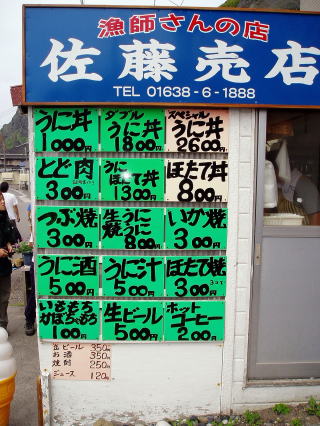 漁師さんの店
佐藤売店
TEL 01638-6-1888
うに丼
1000円
ダブル
うに丼
1800円
スペシャル
うに丼
2600円
とど肉
300円
うに
ほたて丼
1300円
ほたて丼
800円
つぶ焼
300円
生うに
焼うに
800円
いか焼
300円
うに酒
500円
うに汁
500円
ほたて焼
300円
いももち
かぼちゃもち
100円
生ビール
500円
ホット
コーヒー
200円
缶ビール 350円
お酒 350円
焼酎 250円
ジュース 120円